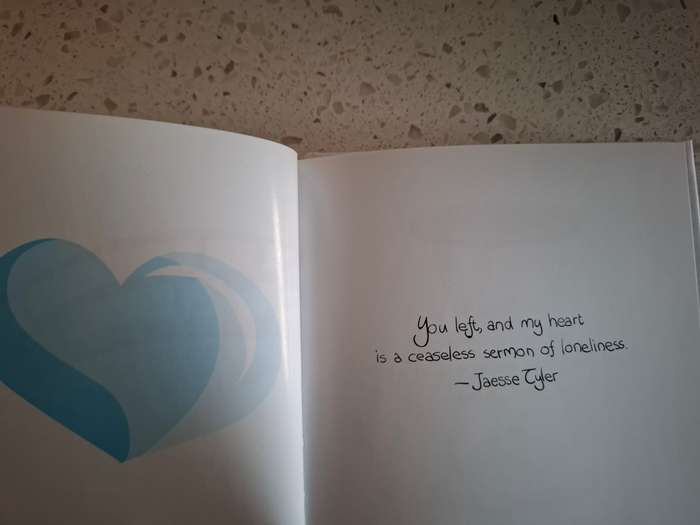 You left, and my heart
is a ceaseless sermon of loneliness.
—Jaesse Tyler